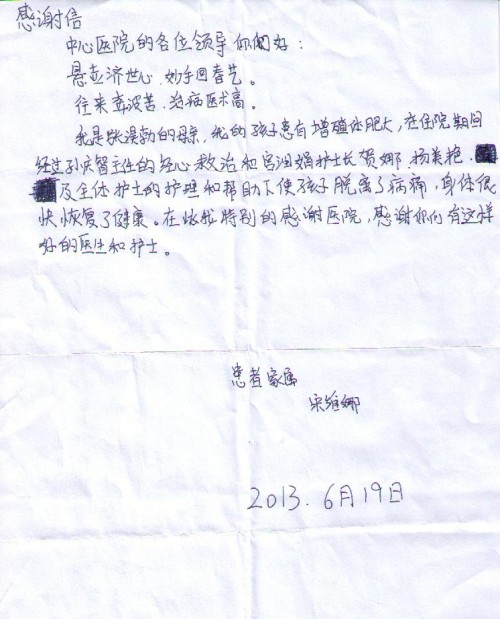 感谢信
中心医院的各位领导你们好：
悬壶济世心.妙手回春艺。
往来奔波苦.治病医术高。
我是张漠勃的母亲，我的孩子患有增殖体肥大，在住院期间
经过孙庆智主任的经心救治和宫润娟护士长贺娜.杨美艳.
及全体护士的护理和帮助下使孩子脱离了病痛，身体很
快恢复了健康。在此我特别的感谢医院，感谢你们有这样
好的医生和护士。
患者家属
宋维娜
2013.6月19日